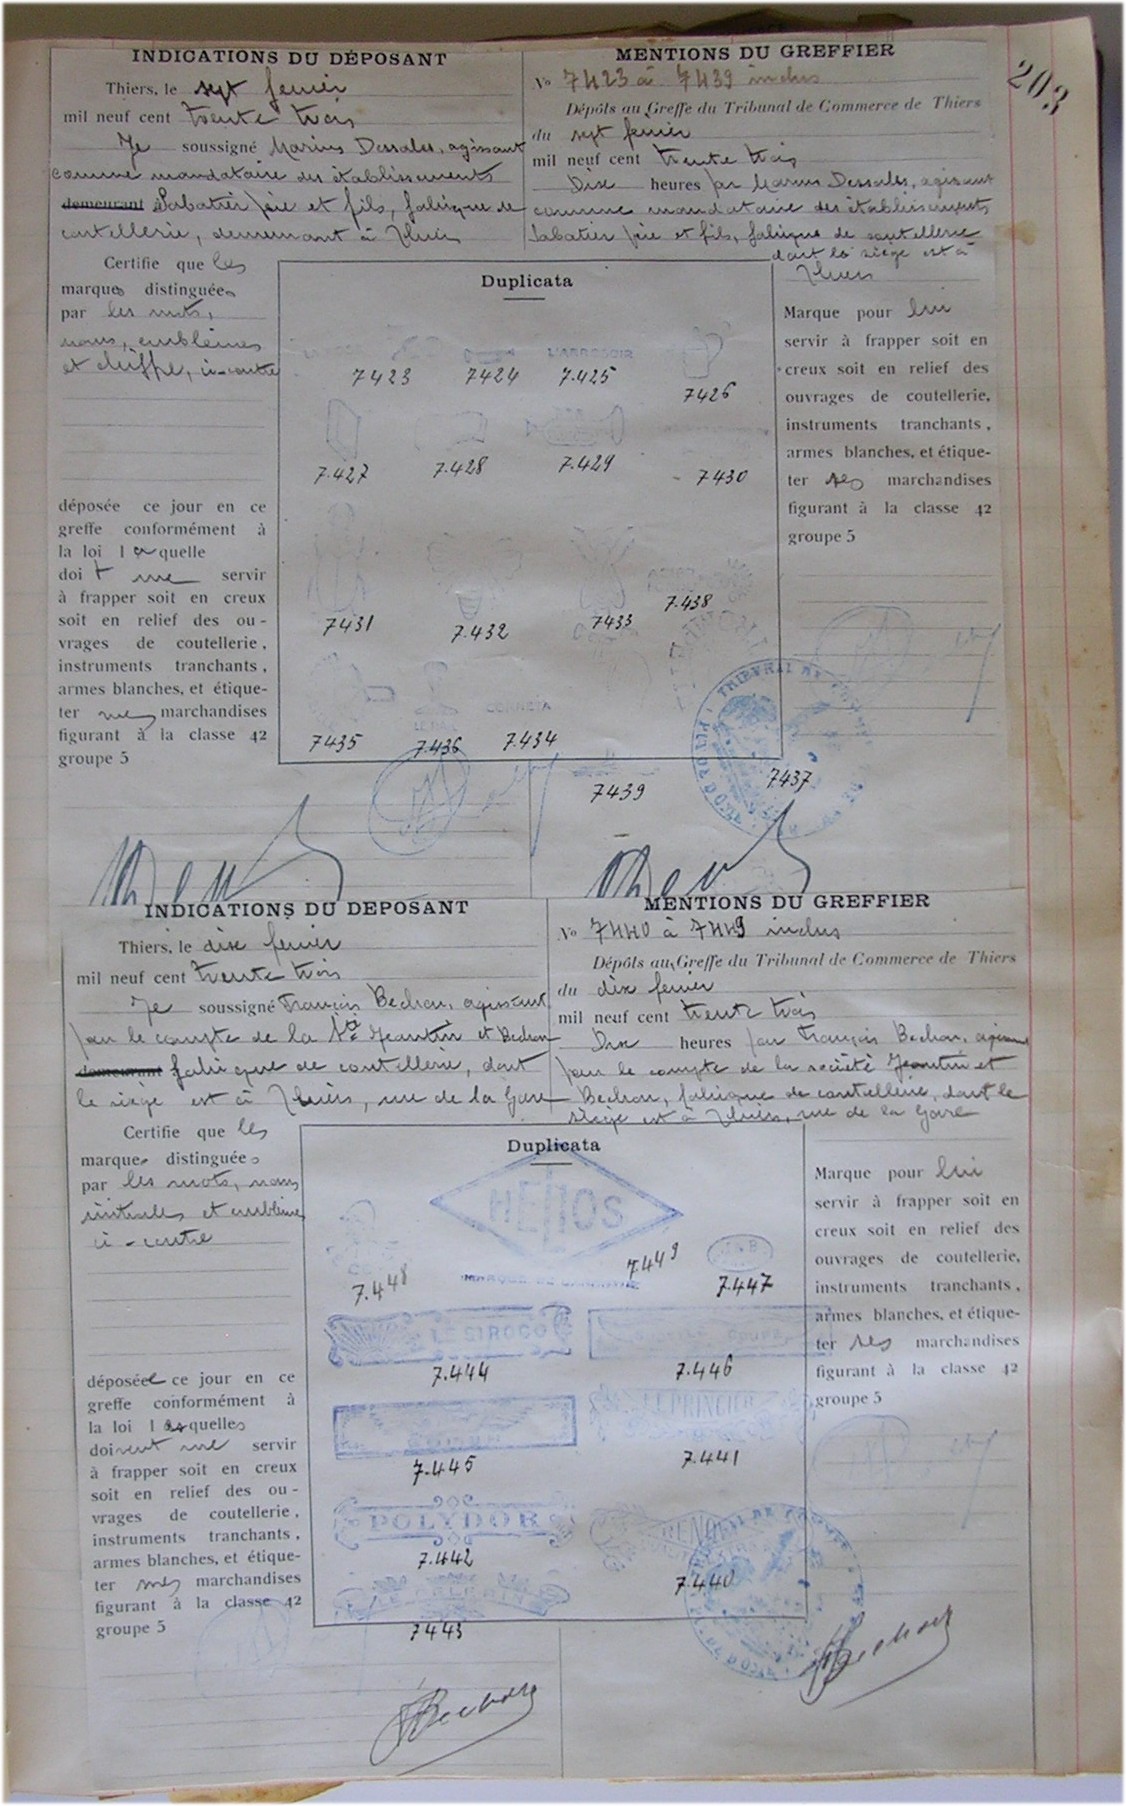 203
INDICATIONS DU DÉPOSANT
Thiers, le sept fevrier
mil neuf cent trente trois
Je soussigné Marius Dessales, agissant
comme mandataire des établissements
demeurant Sabatier père et fils, fabrique de
coutellerie, demeurant à Thiers
Certifie que les
marques distinguées
par les mots,
noms, emblèmes
et chiffre, ci-contre
déposée ce jour en ce
greffe conformément à
la loi laquelle
doit me servir
à frapper soit en creux
soit en relief des ou-
vrages de coutellerie,
instruments tranchants,
armes blanches, et étique-
ter mes marchandises
figurant à la classe 42
groupe 5
MENTIONS DU GREFFIER
No 7423 à 7439 inclus
Dépôts au Greffe du Tribunal de Commerce de Thiers
du sept fevrier
mil neuf cent trente trois
Dix heures par Marius Dessales, agissant
comme mandataire des établissements
Sabatier père et fils, fabrique de coutellerie
dont le siège est à
Thiers
Duplicata
L'ARROSOIR
7423 7424 7.425
7426
7.427 7.428 7.429 7430
7431 7.432 7433 7.438
CORNETA
7435 7.436 7.434
7439 7437
Marque pour lui
servir à frapper soit en
creux soit en relief des
ouvrages de coutellerie,
instruments tranchants,
armes blanches, et étique-
ter ses marchandises
figurant à la classe 42
groupe 5
INDICATIONS DU DEPOSANT
Thiers, le dix fevrier
mil neuf cent trente trois
Je soussigné François Bechon, agissant
pour le compte de la Sté Jeantin et Bechon
demeurant fabrique de coutellerie, dont
le siège est à Thiers, rue de la Gare
Certifie que les
marques distinguées
par les mots, noms
initiales et emblèmes
ci-contre
déposée ce jour en ce
greffe conformément à
la loi lesquelles
doivent me servir
à frapper soit en creux
soit en relief des ou-
vrages de coutellerie,
instruments tranchants,
armes blanches, et étique-
ter mes marchandises
figurant à la classe 42
groupe 5
MENTIONS DU GREFFIER
No 7440 à 7449 inclus
Dépôts au Greffe du Tribunal de Commerce de Thiers
du dix fevrier
mil neuf cent trente trois
Dix heures par François Bechon, agissant
pour le compte de la société Jeantin et
Bechon, fabrique de coutellerie, dont le
siège est à Thiers, rue de la Gare
Duplicata
HELIOS
7.448 7.449 7.447
LE SIROCO
7.444 7.446
LE PRINCIER
7.445 7.441
POLYDOR
7.442
7.440
7443
Marque pour lui
servir à frapper soit en
creux soit en relief des
ouvrages de coutellerie,
instruments tranchants,
armes blanches, et étique-
ter ses marchandises
figurant à la classe 42
groupe 5
Bechon
Bechon